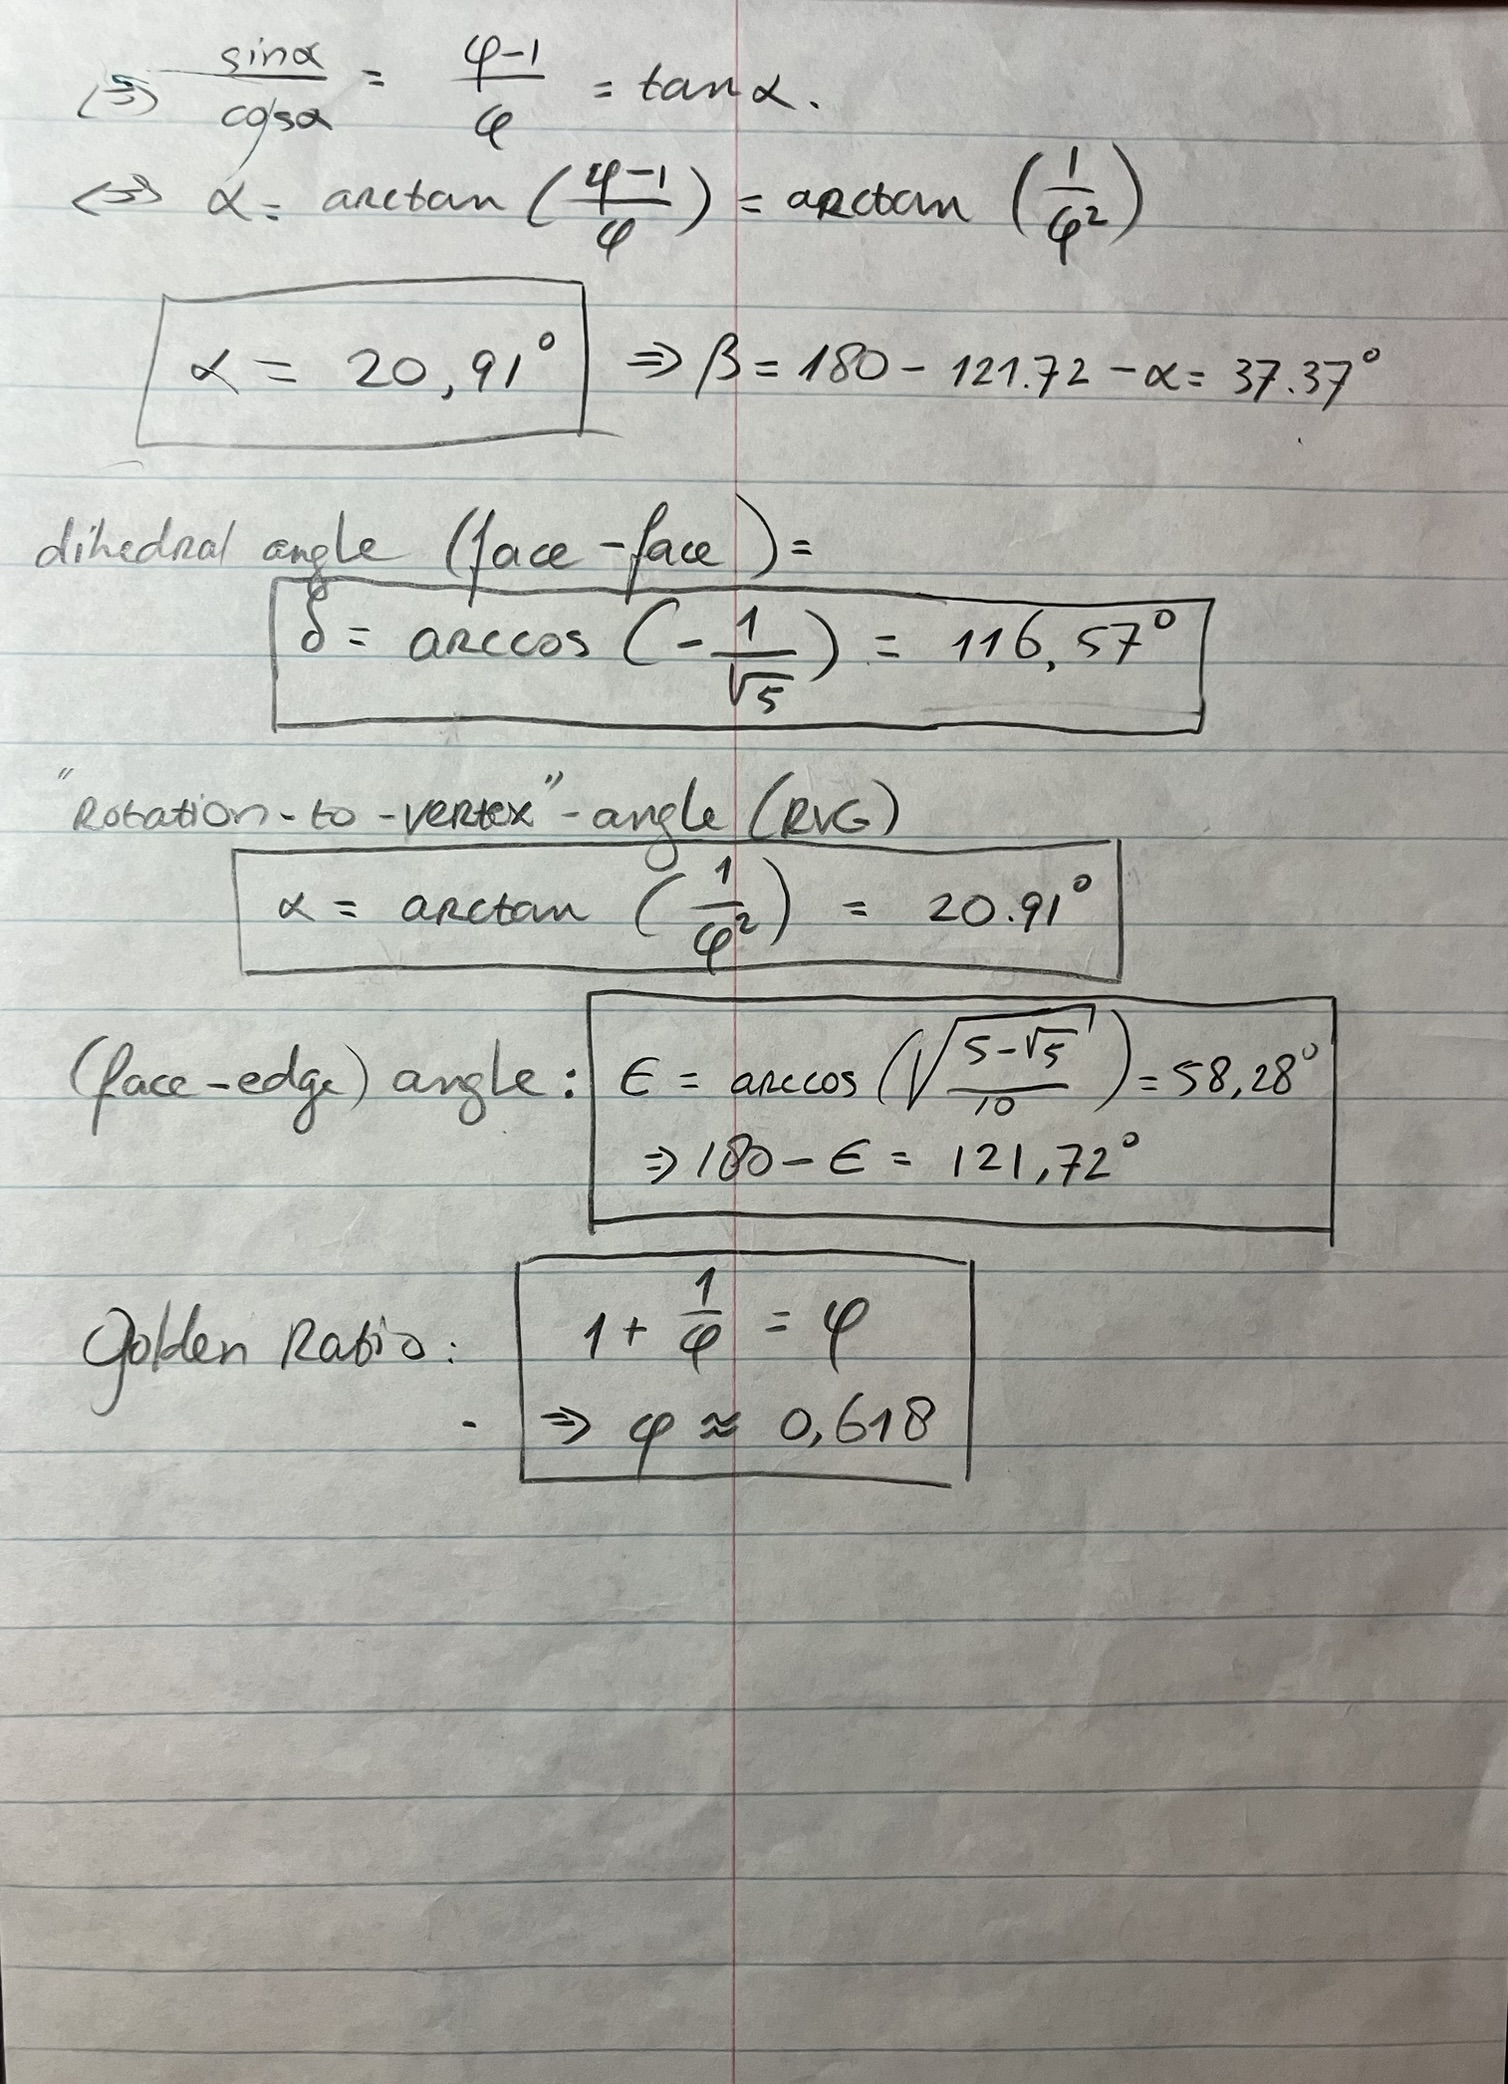 (⇒) sinα/cosα = (φ-1)/φ = tan α.
⇔ α = arctan ((φ-1)/φ) = arctan (1/φ²)
α = 20,91° ⇒ β = 180 - 121.72 - α = 37.37°
dihedral angle (face-face) =
δ = arccos (-1/√5) = 116,57°
"Rotation-to-vertex"-angle (RVG)
α = arctan (1/φ²) = 20.91°
(face-edge) angle: ϵ = arccos (√((5-√5)/10)) = 58,28°
⇒ 180 - ϵ = 121,72°
Golden Ratio: 1 + 1/φ = φ
⇒ φ ≈ 0,618